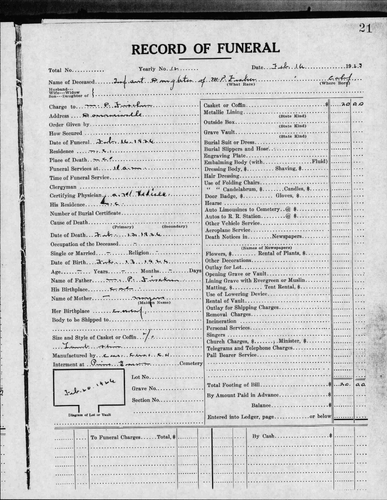 21
RECORD OF FUNERAL
Total No. Yearly No. 12 Date Feb. 16 19
Name of Deceased Infant Daughter of M. P.
Husband— Wife—Widow Son—Daughter of (What Race)
Charge to M. P.
Address
Order Given by
How Secured
Date of Funeral Feb. 16. 1926
Residence N.C.
Place of Death N.C.
Funeral Services at 11 a.m.
Time of Funeral Service
Clergyman
Certifying Physician
His Residence
Number of Burial Certificate
Cause of Death
(Primary) (Secondary)
Date of Death Feb. 13. 1926
Occupation of the Deceased
Single or Married Religion
Date of Birth Feb. 13. 1926
Age, Years, Months Days
Name of Father M. P.
His Birthplace
Name of Mother Myers
(Maiden Name)
Her Birthplace
Body to be Shipped to
Size and Style of Casket or Coffin
Manufactured by
Interment at Cemetery
Lot No.
Grave No.
Section No.
Feb. 1926
Diagram of Lot or Vault
Casket or Coffin $ 20 00
Metallic Lining
(State Kind)
Outside Box
(State Kind)
Grave Vault
(State Kind)
Burial Suit or Dress
Burial Slippers and Hose
Engraving Plate
Embalming Body (with Fluid)
Dressing Body, $ Shaving, $
Hair Dressing
Use of Folding Chairs
" " Candelabrum, $ Candles, $
Door Badge, $ Gloves, $
Hearse
Auto Limousines to Cemetery @ $
Autos to R. R. Station @ $
Other Vehicle Service
Aeroplane Service
Death Notices in Newspapers
(Names of Newspapers)
Flowers, $ Rental of Plants, $
Other Decorations
Outlay for Lot
Opening Grave or Vault
Lining Grave with Evergreen or Muslin
Matting, $ Tent Rental, $
Use of Lowering Device
Rental of Vault
Outlay for Shipping Charges
Removal Charges
Incineration
Personal Services
Singers
Church Charges, $ Minister, $
Telegrams and Telephone Charges
Pall Bearer Service
Total Footing of Bill $ 20 00
By Amount Paid in Advance
Balance $
Entered into Ledger, page or below
To Funeral Charges Total, $ By Cash $